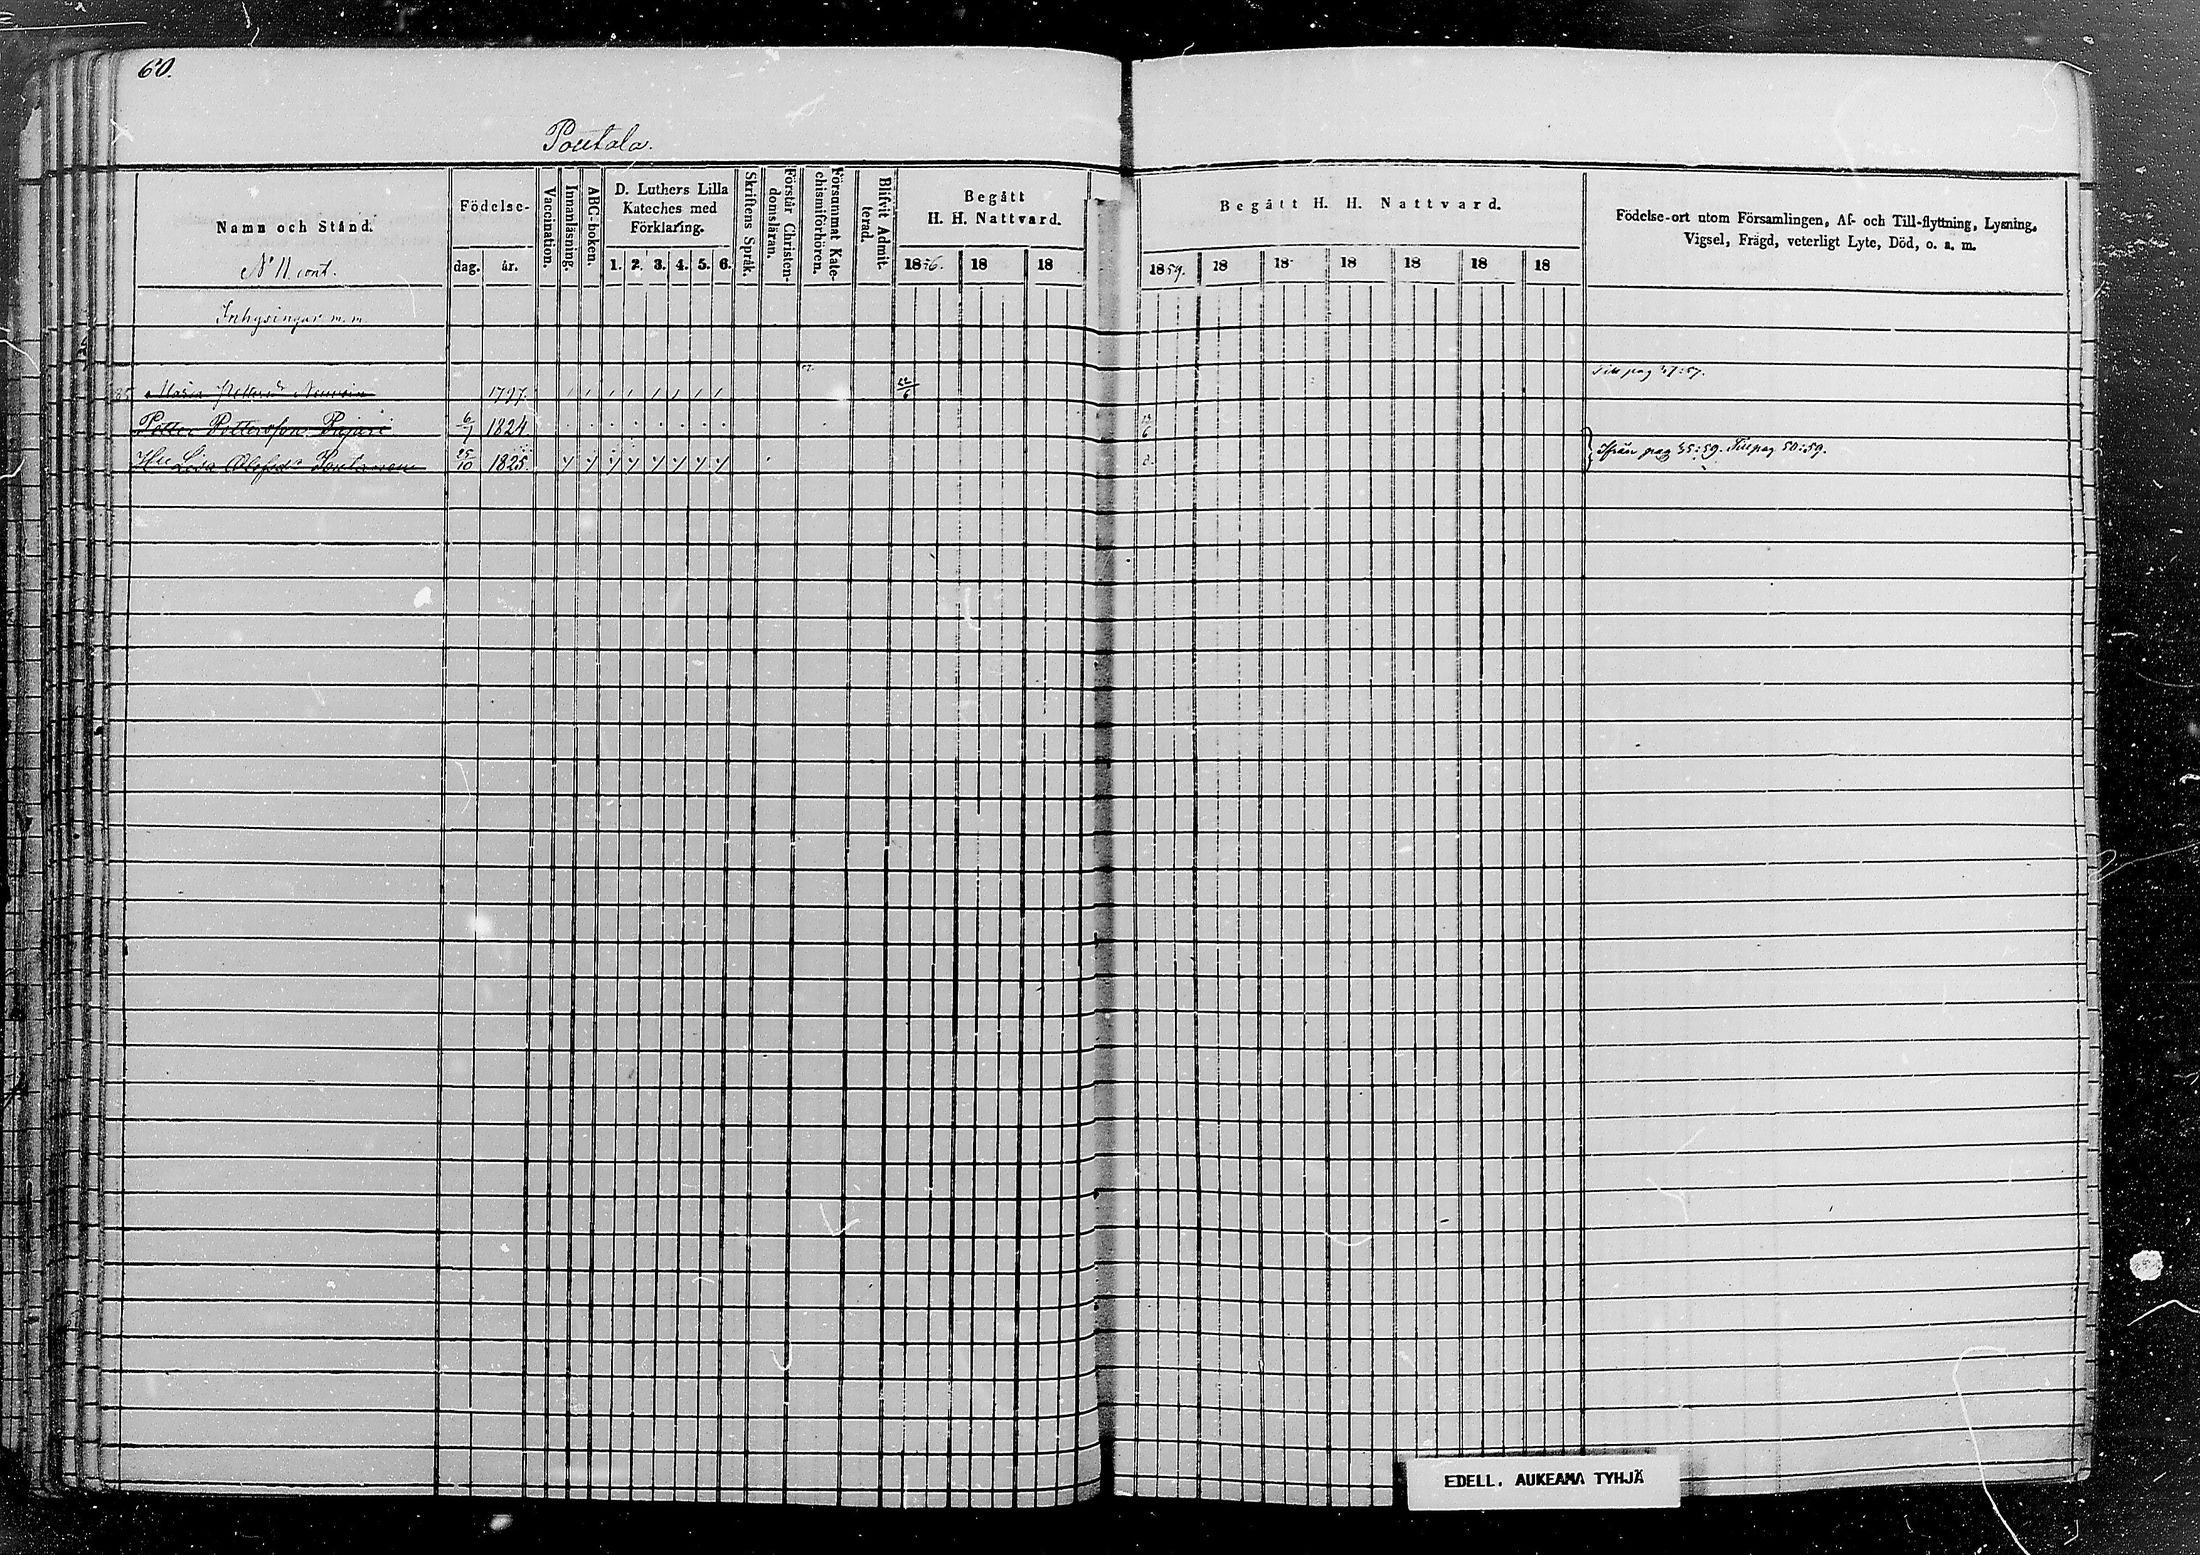 60.
Poutala.
Namn och Stånd.
N° 11. cont.
Födelse-
dag. år.
Vaccination.
Innanläsning.
ABC-boken.
D. Luthers Lilla
Kateches med
Förklaring.
1. 2. 3. 4. 5. 6.
Skriftens Språk.
Förstår Christen-
domsläran.
Försummat Kate-
chismiförhören.
Blifvit Admit-
terad.
Begått
H. H. Nattvard.
1856. 18 18
Begått H. H. Nattvard.
1859. 18 18 18 18 18 18
Födelse-ort utom Församlingen, Af- och Till-flyttning, Lysning,
Vigsel, Frägd, veterligt Lyte, Död, o. a. m.
Inhysingar m. m.
Maria 1797. 22/6 Till pag 57.
Petter Pettersson 6/1 1824.
Hu Lisa Olofsdr 25/10 1825. Ifrån pag 35:59. Till pag 50:59.
EDELL. AUKEAMA TYHJÄ